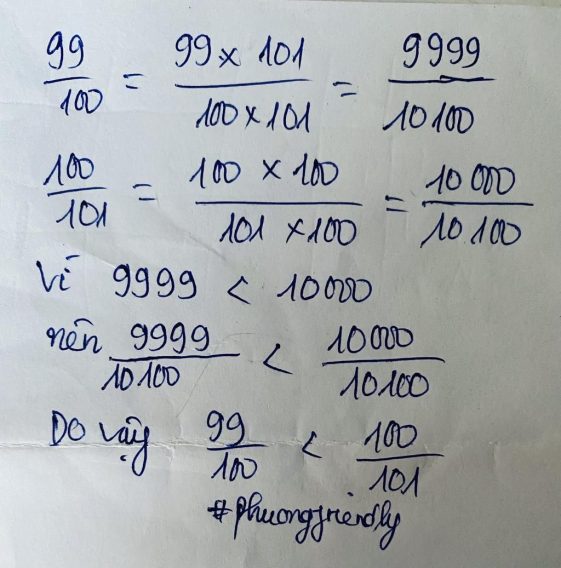 99/100 = 99 x 101/100 x 101 = 9999/10100
100/101 = 100 x 100/101 x 100 = 10000/10100
Vì 9999 < 10000
nên 9999/10100 < 10000/10100
Do vậy 99/100 < 100/101
#phuongfriendly